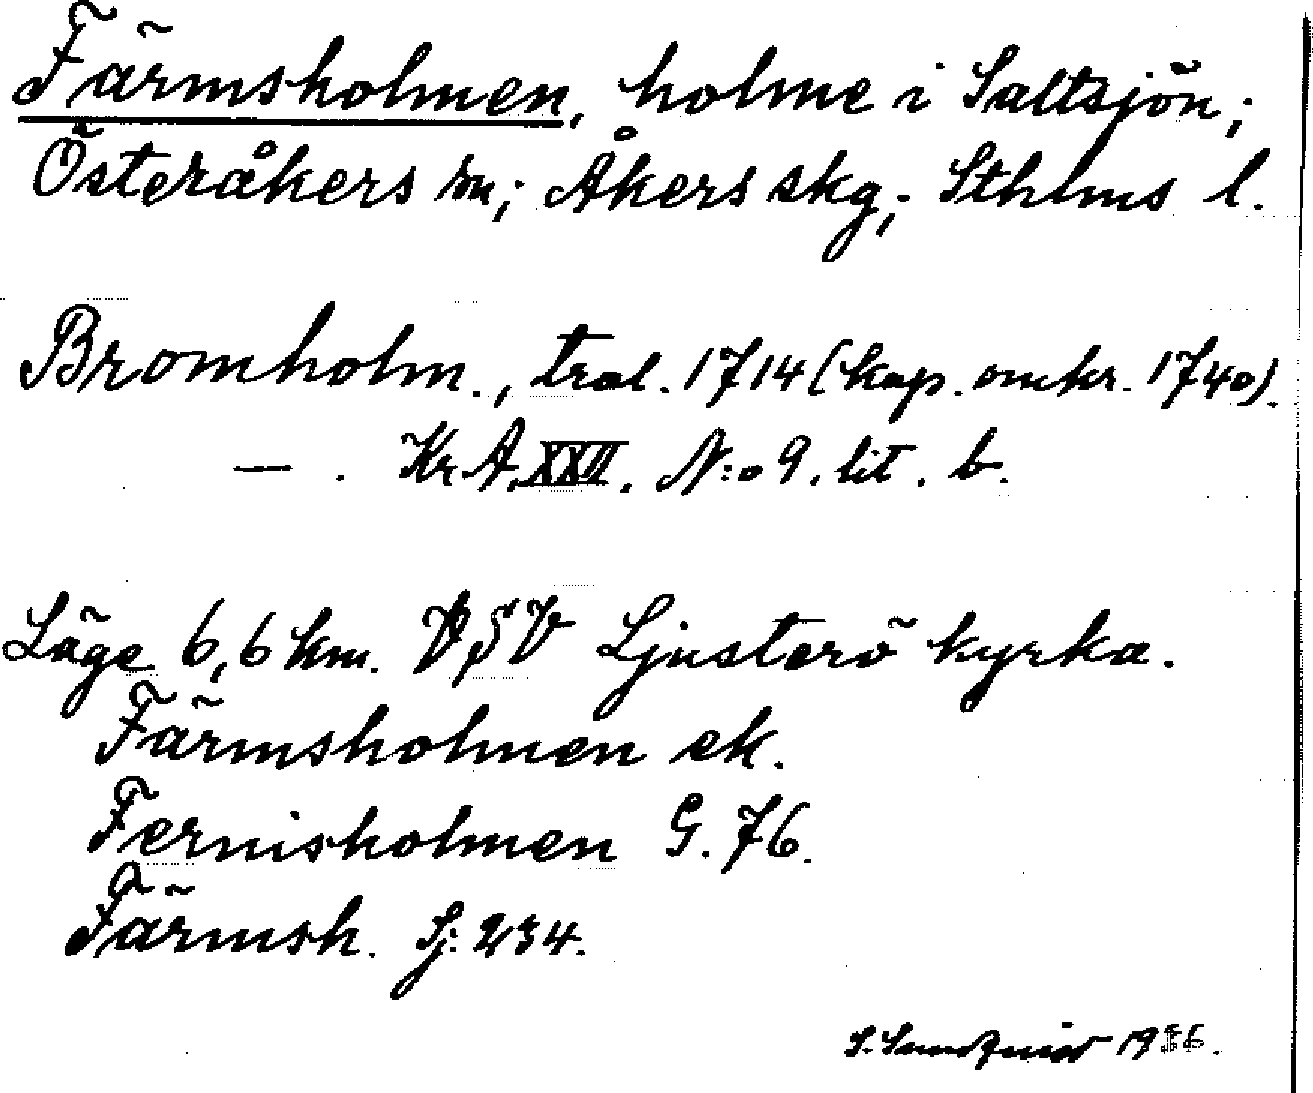 Färmsholmen, holme i Saltsjön;
Österåkers sn; Åkers skg; Sthlms l.
Bromholm., trol. 1714 (kop. omkr. 1740).
— . Kr.A. XXVI. N:o 9. lit. b.
Läge 6,6 km. VSV Ljusterö kyrka.
Färmsholmen ek.
Fernisholmen G. 76.
Färmsh. Sj: 234.
S. Sundqvist 1936.